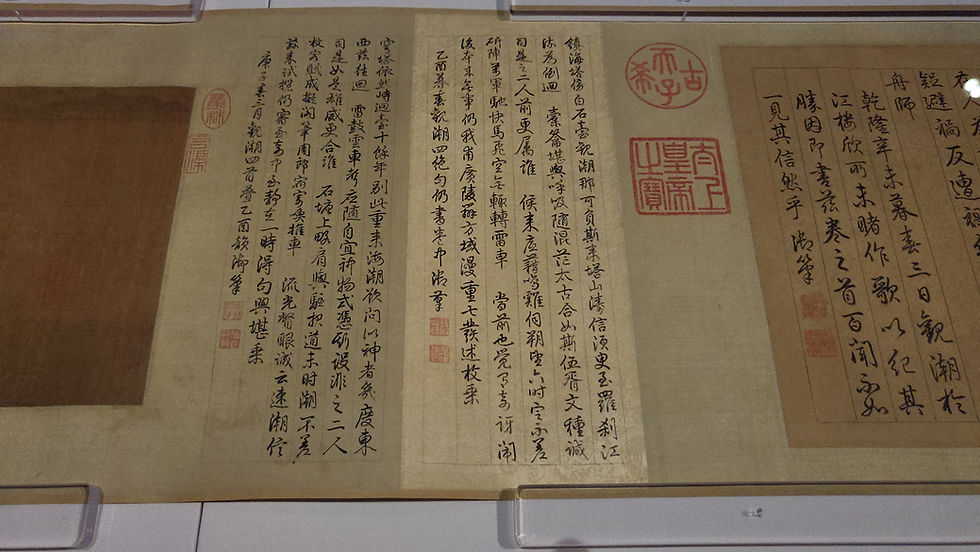 短避禍反遭
舟師
乾隆辛未暮春三日觀潮於
江樓欣所未睹作歌以紀其
勝因即書茲卷之首百聞不如
一見其信然乎御筆
古希天子
太上皇帝之寶
鎮海塔傍白石臺觀潮那可負斯來塔山濤信須更至羅剎江
流為倒迴 橐籥堪輿呼吸隨混茫太古合如斯伍胥文種誠
司是之二人前更屬誰 候來底藉鳴雞伺朔望六時定不差
斫陣萬軍馳快馬飛空無轍轉雷車 當前也覺有奇訝鬧
後本來無事仍我甫廣陵辨方域漫重七發述枚乘
乙酉暮春觀潮四絕句仍書卷中御筆
穹塔依然峙迴臺十餘年別此重來海潮欲問似神者幾度東
西茲往迴 雷鼓雲車考應隨自宜神物式憑斯設非之二人
司是如是雄威更合誰 石塘上畷肩輿驅指道未時潮不差
枚客賦成擬閣筆 流光瞥眼誠云速潮信
茲來試把仍至奇中至靜在一時得句興堪乘
庚子季三月觀潮四首疊乙酉韻御筆